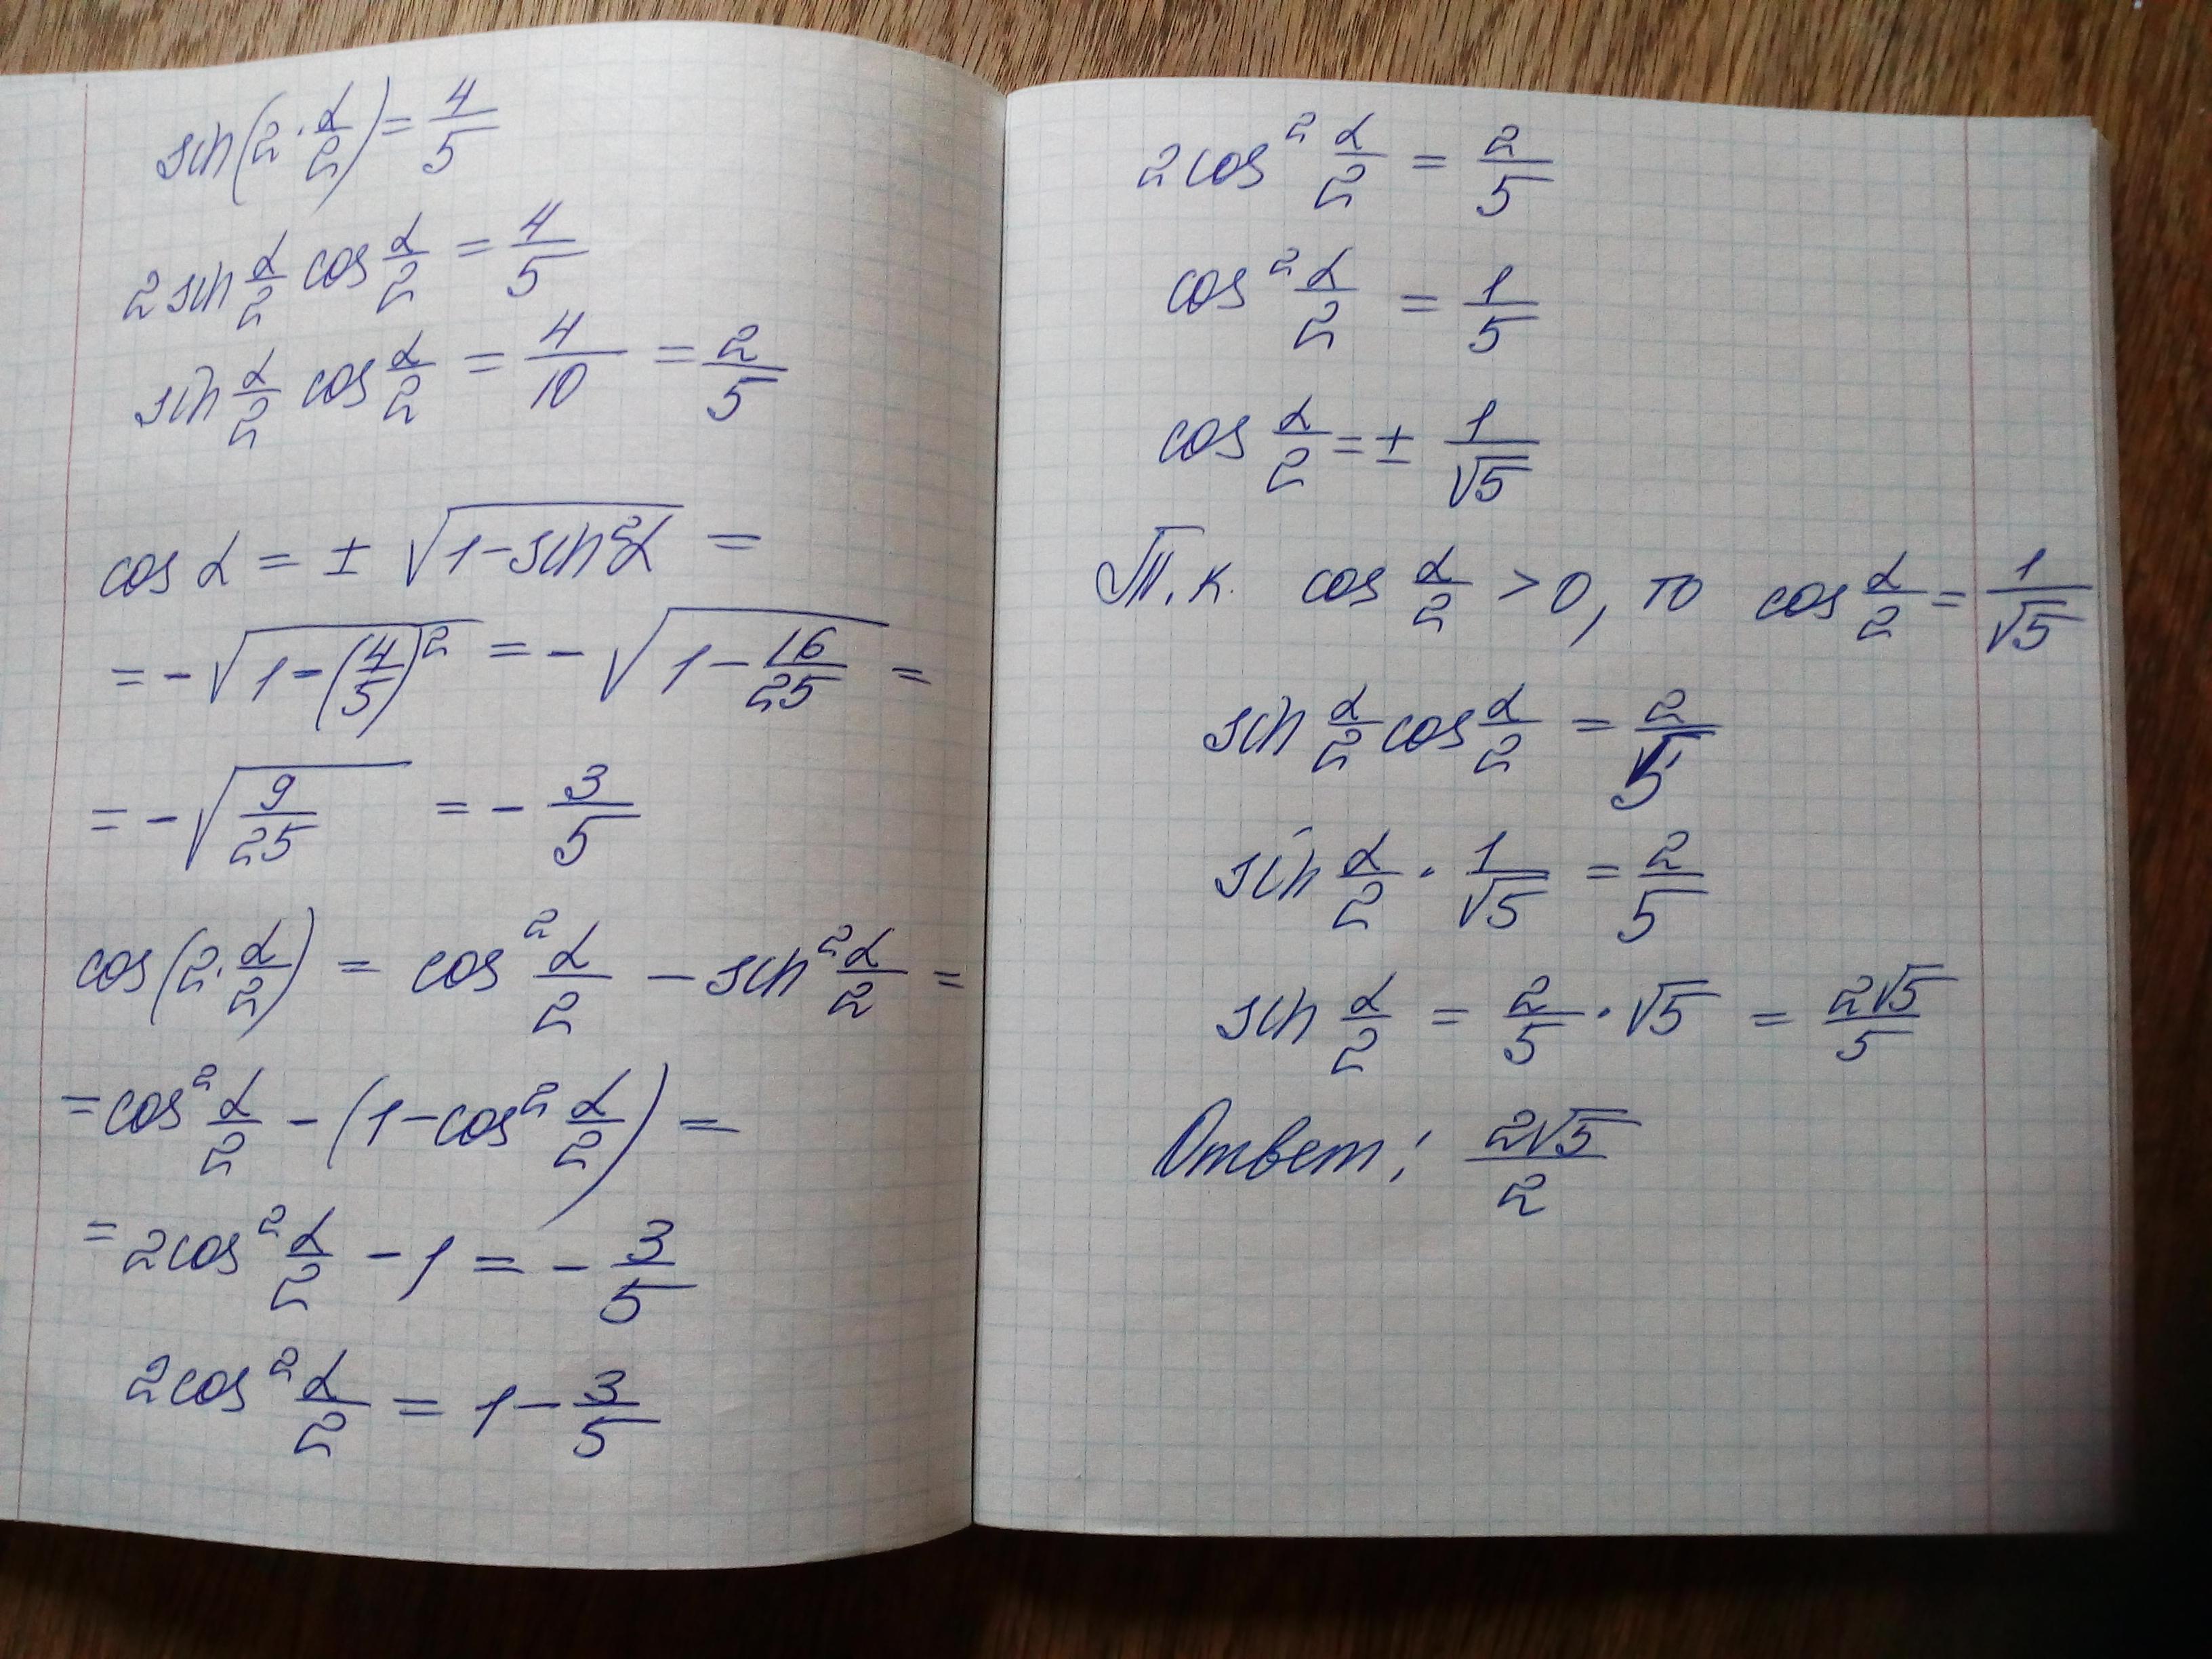 sin(2·α/2)=4/5
2 sin α/2 cos α/2 = 4/5
sin α/2 cos α/2 = 4/10 = 2/5
cos α = ± √(1-sin²α) =
= -√(1-(4/5)²) = -√(1-16/25) =
= -√(9/25) = - 3/5
cos(2·α/2) = cos² α/2 - sin² α/2 =
= cos² α/2 - (1-cos² α/2) =
= 2cos² α/2 - 1 = - 3/5
2cos² α/2 = 1 - 3/5
2cos² α/2 = 2/5
cos² α/2 = 1/5
cos α/2 = ± 1/√5
Т.к. cos α/2 > 0, то cos α/2 = 1/√5
sin α/2 cos α/2 = 2/5
sin α/2 · 1/√5 = 2/5
sin α/2 = 2/5 · √5 = 2√5/5
Ответ: 2√5/2